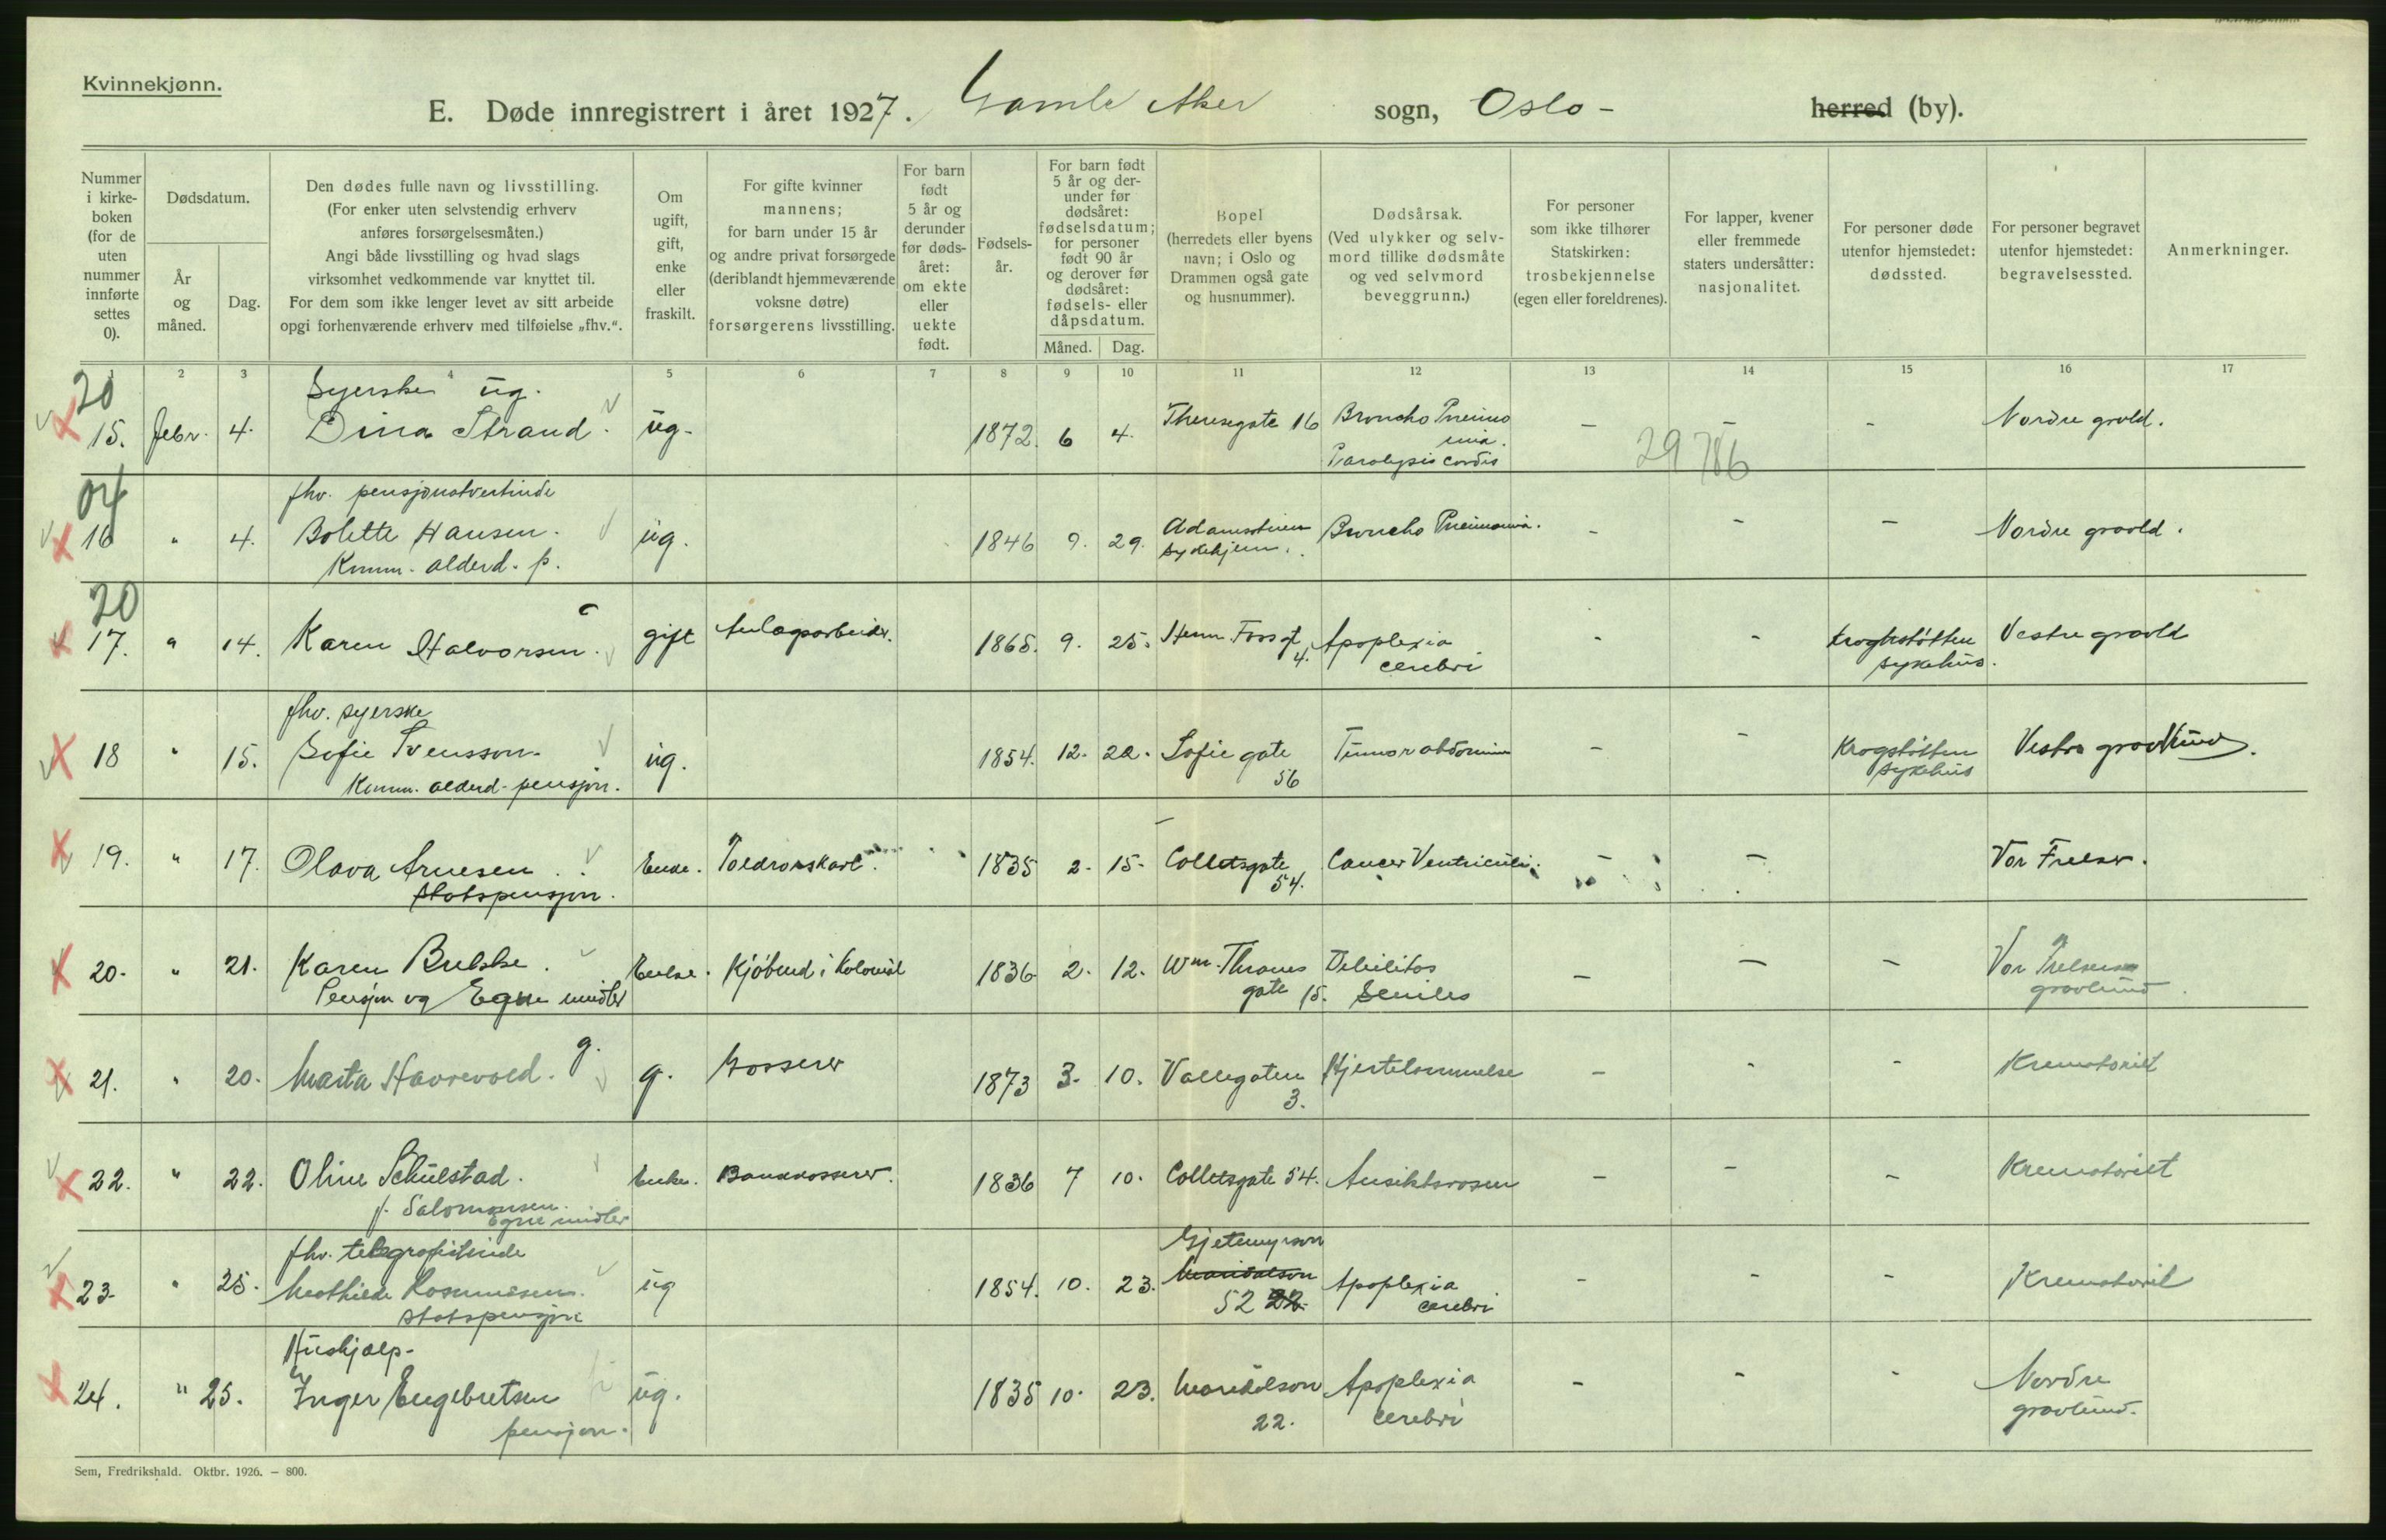 Kvinnekjønn.
E. Døde innregistrert i året 1927. Gamle Aker sogn, Oslo - herred (by).
Nummer i kirke-boken (for de uten nummer innførte settes 0).
Dødsdatum.
År og måned.
Dag.
Den dødes fulle navn og livsstilling.
(For enker uten selvstendig erhverv
anføres forsørgelsesmåten.)
Angi både livsstilling og hvad slags
virksomhet vedkommende var knyttet til.
For dem som ikke lenger levet av sitt arbeide
opgi forhenværende erhverv med tilføielse „fhv.“.
Om ugift, gift, enke eller fraskilt.
For gifte kvinner
mannens;
for barn under 15 år
og andre privat forsørgede
(deriblandt hjemmeværende
voksne døtre)
forsørgerens livsstilling.
For barn født 5 år og derunder før døds-året: om ekte eller uekte født.
Fødsels-år.
For barn født 5 år og der-under før dødsåret: fødselsdatum; for personer født 90 år og derover før dødsåret: fødsels- eller dåpsdatum.
Måned.
Dag.
Bopel
(herredets eller byens
navn; i Oslo og
Drammen også gate
og husnummer).
Dødsårsak.
(Ved ulykker og selv-
mord tillike dødsmåte
og ved selvmord
beveggrunn.)
For personer
som ikke tilhører
Statskirken:
trosbekjennelse
(egen eller foreldrenes).
For lapper, kvener
eller fremmede
staters undersåtter:
nasjonalitet.
For personer døde
utenfor hjemstedet:
dødssted.
For personer begravet
utenfor hjemstedet:
begravelsessted.
Anmerkninger.
1 2 3 4 5 6 7 8 9 10 11 12 13 14 15 16 17
20
Syerske ug.
15. febr. 4. Dina Strand. ug. 1872. 6 4. Theresegate 16 Broncho Pneumo
nia.
Paralysis cordis
- 29786 - - Nordre gravld.
04
fhv. pensjonatvertinde
16 " 4. Bolette Hansen. ug. 1846 9. 29. Adamstuen
sykehjem. Broncho Pneumonia. - - - Nordre gravld.
Komm. alderd. p.
20
17. " 14. Karen Halvorsen. gift Anlægsarbeider. 1865. 9. 25. Herm. Foss gt
4. Apoplexia
cerebri - - Kroghstøtten
sykehus. Vestre gravld
fhv. syerske
18 " 15. Sofie Svensson. ug. 1854. 12. 22. Sofie gate
56 Tumor abdomin - - Krogstøtten
sykehus Vestre gravlund.
Komm. alderd-pensjon.
19. " 17. Olava Arnesen. Enke. 1835 2. 15. Colletsgate
54. Cancer Ventriculi. - - Vor Frelser.
Statspensjon.
20. " 21. Karen Enke. Kjøbmd i Kolonial 1836 2. 12. Wm. Thranes
gate 15. Debilitas
Seniles - - - Vor Frelsers
gravlund.
Pensjon og Egne midler
g.
21. " 20. Marta Havrevold. g. Grosserer 1873 3. 10. Vallegaten
3. Hjertelammelse - - - Krematoriet
22. " 22. Oline Schulstad. Enke. 1836 7 10. Colletsgate 54. Ansiktsrosen - - - Krematoriet
f. Salomonsen.
Egne midler
fhv. telegrafistinde
23. " 25. Mathilde Rasmussen. ug 1854. 10. 23. Gjetemyrsvn
Maridalsvn
52 22. Apoplexia
cerebri - - - Krematoriet
Statspensjon
Hushjælp-
24. " 25. Inger Engebretsen ug. 1835 10. 23. Maridalsvn
22. Apoplexia
cerebri - - - Nordre
gravlund.
pensjon.
Sem, Fredrikshald. Oktbr. 1926. – 800.